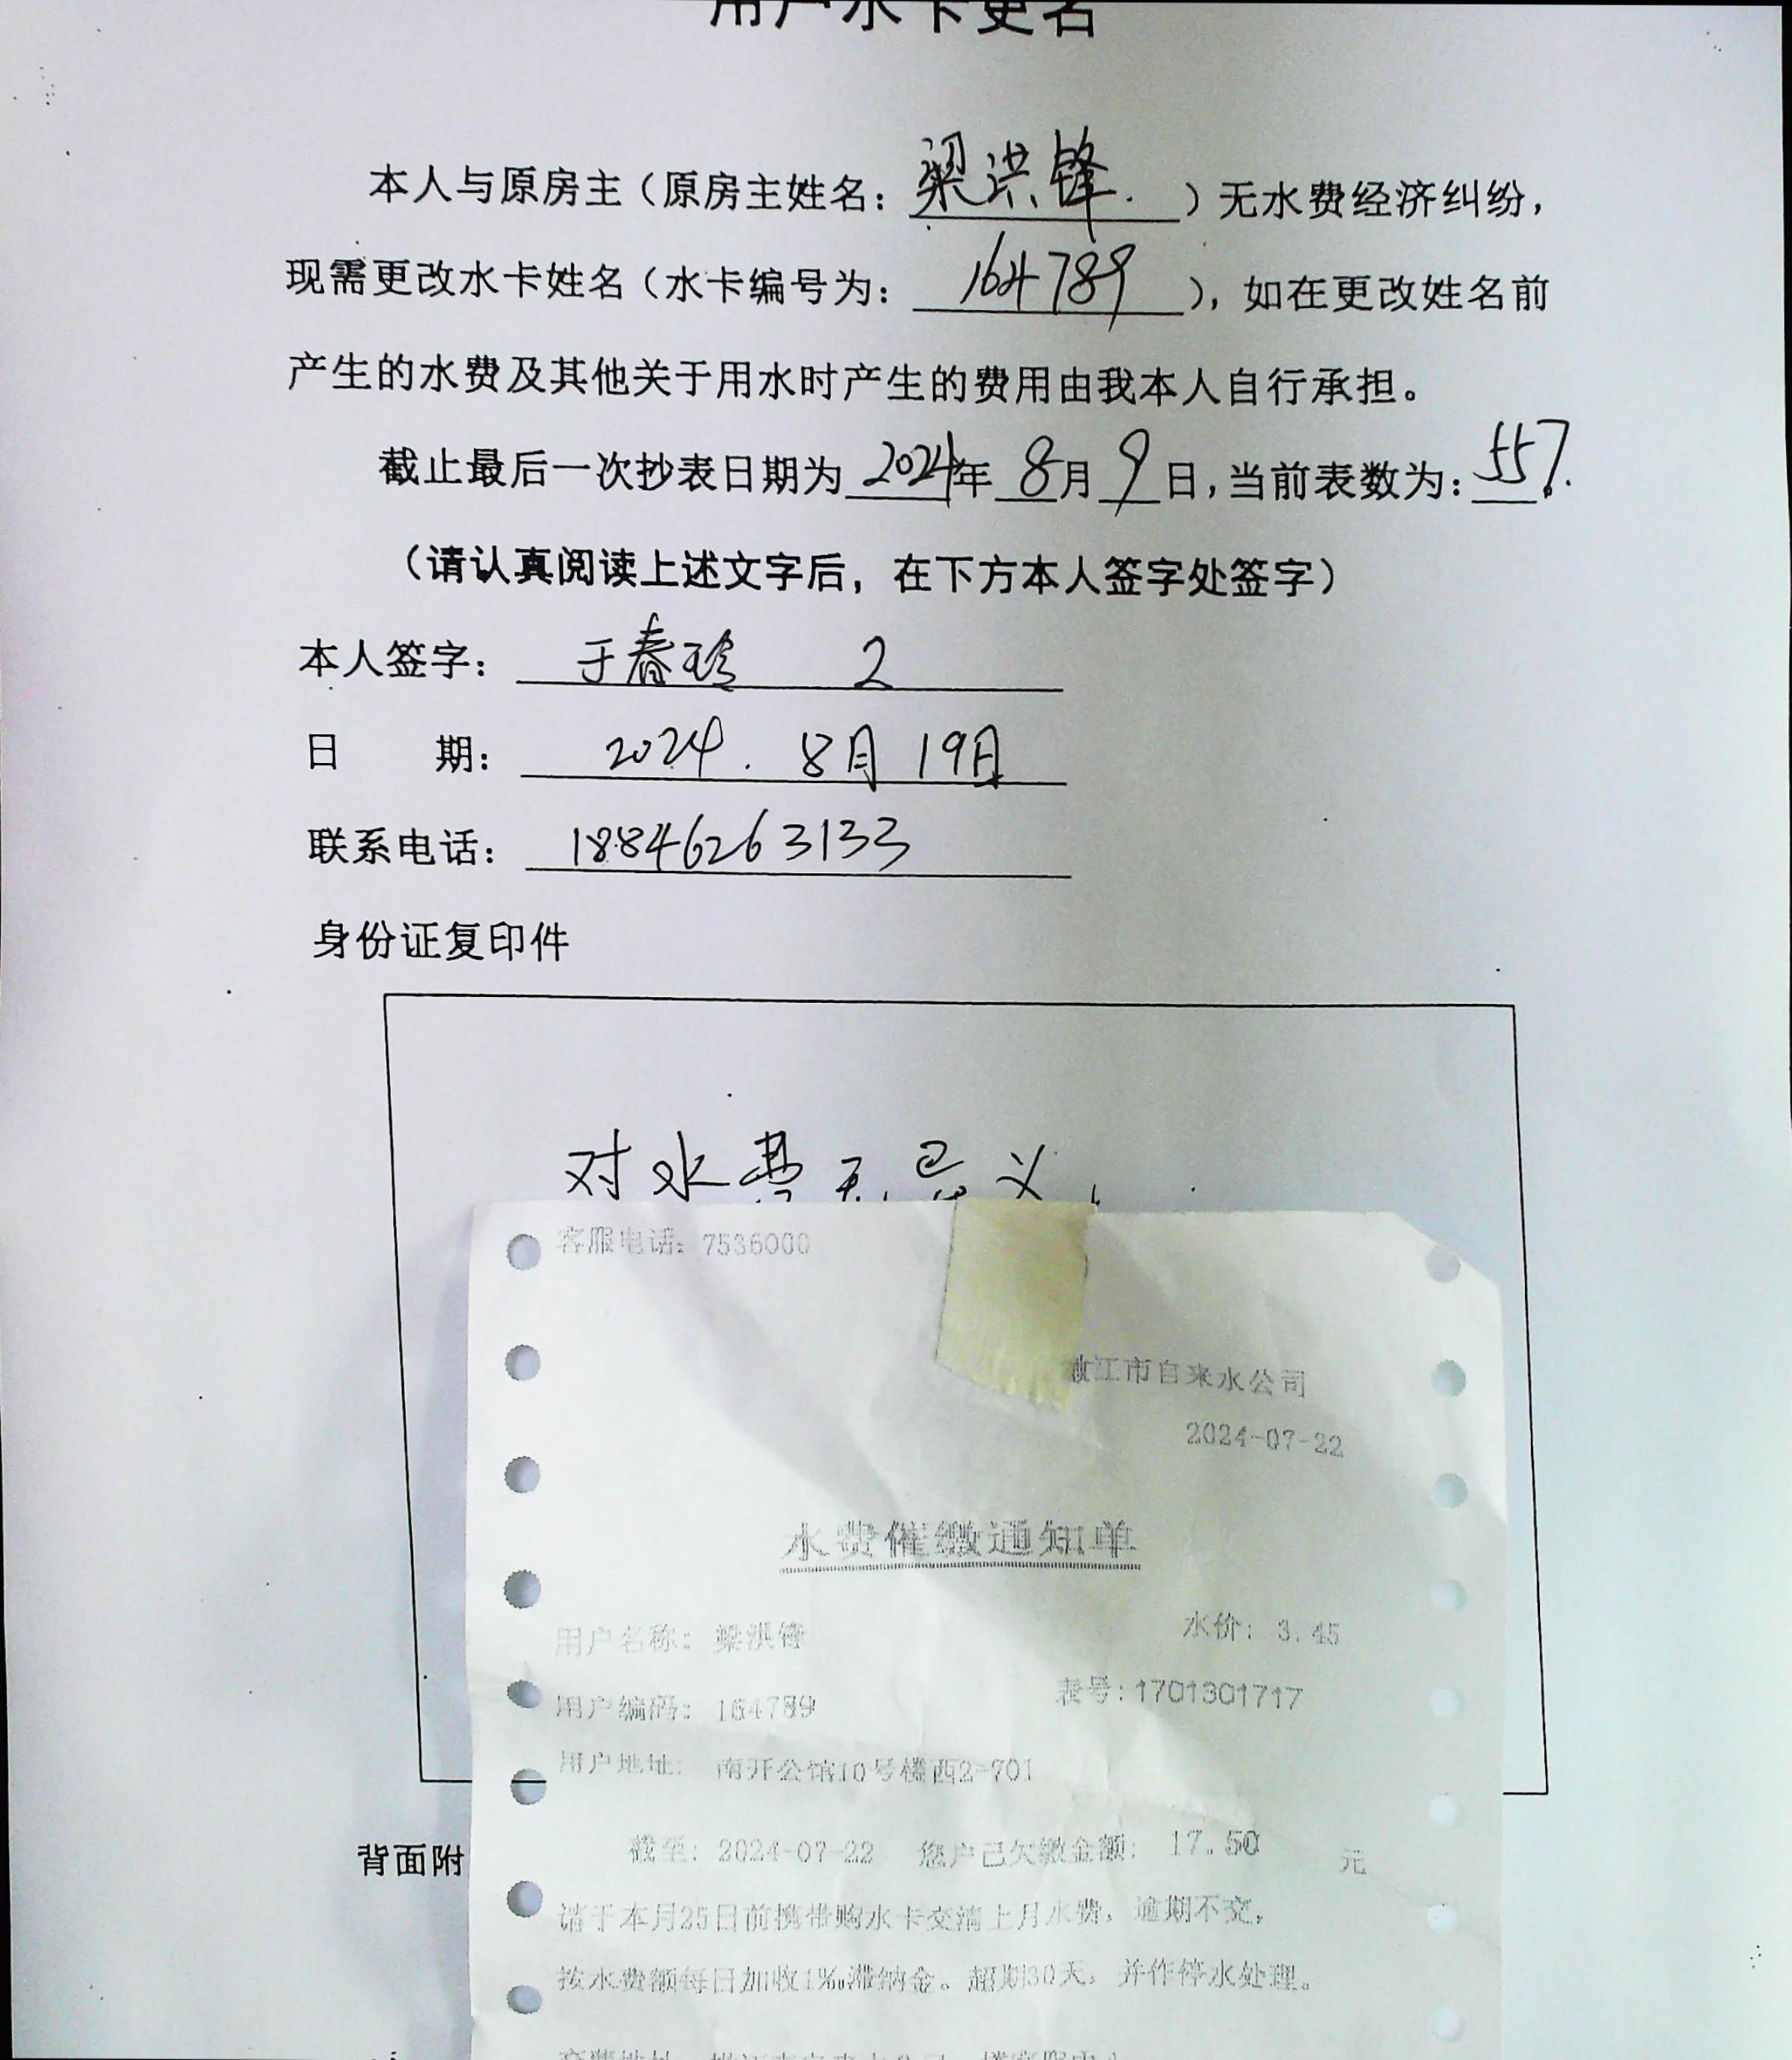 用户水卡更名
本人与原房主（原房主姓名：梁洪锋.）无水费经济纠纷，
现需更改水卡姓名（水卡编号为：164789），如在更改姓名前
产生的水费及其他关于用水时产生的费用由我本人自行承担。
截止最后一次抄表日期为2024年8月9日，当前表数为：557.
（请认真阅读上述文字后，在下方本人签字处签字）
本人签字：于春玲 2
日 期：2024.8月19日
联系电话：18846263133
身份证复印件
对水费无异义
客服电话：7536000
江市自来水公司
2024-07-22
水费催缴通知单
用户名称：梁洪锋 水价：3.45
用户编码：164789 表号：1701301717
用户地址：南开公馆10号楼西2-701
截至：2024-07-22 您户已欠缴金额：17.50 元
背面附
请于本月25日前携带购水卡交清上月水费，逾期不交，
按水费额每日加收1‰滞纳金。超期30天，并作停水处理。